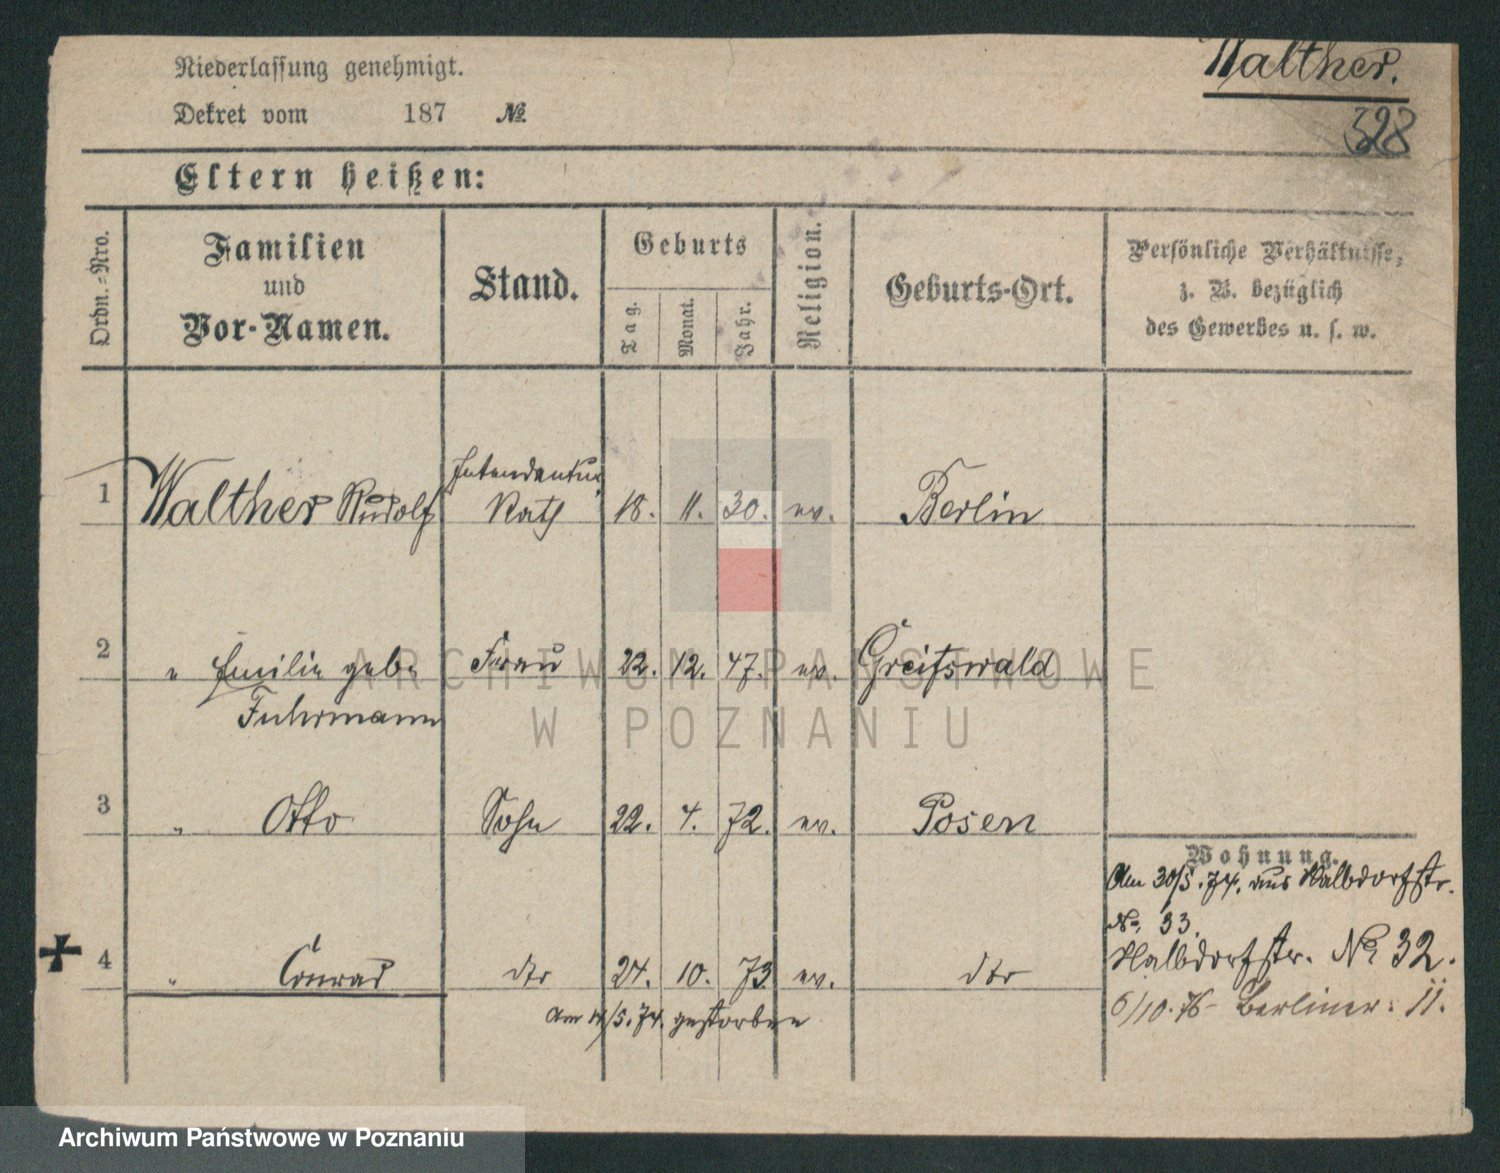 Walther.
328
Niederlassung genehmigt.
Dekret vom 187 №
Eltern heißen:
Ordn.-Nro.
Familien
und
Vor-Namen.
Stand.
Geburts
Tag.
Monat.
Jahr.
Religion.
Geburts-Ort.
Persönliche Verhältnisse,
z. B. bezüglich
des Gewerbes u. s. w.
Intendantur
1 Walther Rudolf Rath 18. 11. 30. ev. Berlin
2 " Emilie geb. Frau 22. 12. 47. ev. Greifswald
Fuhrmann
3 " Otto Sohn 22. 4. 72. ev. Posen
Wohnung.
Am 30/5. 74. aus Halbdorfstr.
№ 33.
4 " Conrad dto 24. 10. 73 ev. dto
Halbdorfstr. № 32.
6/10. 76 Berliner: 11.
Am /5. 74. gestorben
ARCHIWUM PAŃSTWOWE
W POZNANIU
Archiwum Państwowe w Poznaniu